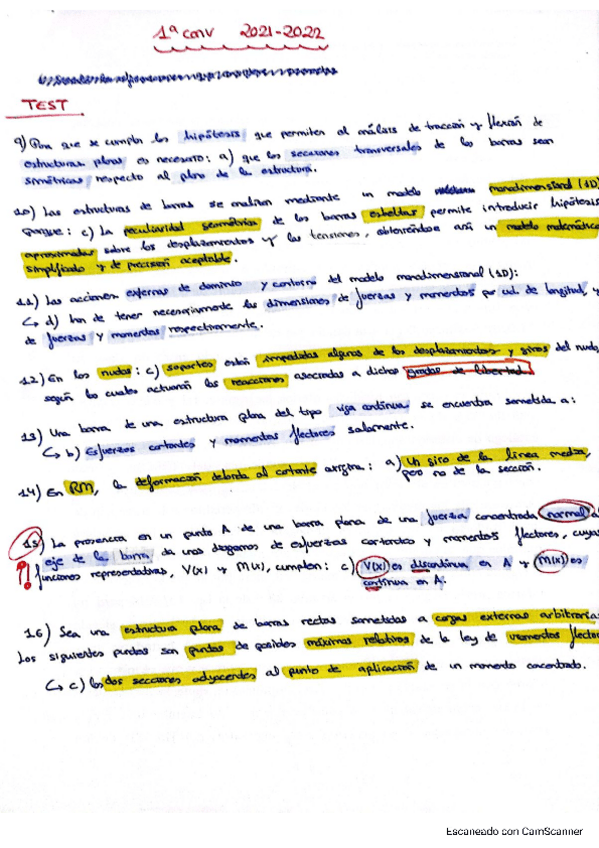 1ª conv 2021-2022
TEST
9) Para que se cumplan las hipótesis que permiten el análisis de tracción y flexión de
estructuras planas es necesario: a) que las secciones transversales de las barras sean
simétricas respecto al plano de la estructura.
10) Las estructuras de barras se analizan mediante un modelo monodimensional (1D)
porque: c) La peculiaridad geométrica de las barras esbeltas permite introducir hipótesis
aproximadas sobre los desplazamientos y las tensiones, obteniéndose así un modelo matemático
simplificado y de precisión aceptable.
11) Las acciones externas de dominio y contorno del modelo monodimensional (1D):
↳ d) han de tener necesariamente las dimensiones de fuerzas y momentos por ud. de longitud, y
de fuerzas y momentos respectivamente.
12) En los nudos: c) soportes están impedidos algunos de los desplazamientos y giros del nudo,
según los cuales actuarán las reacciones asociadas a dichos grados de libertad.
13) Una barra de una estructura plana del tipo viga continua se encuentra sometida a:
↳ b) Esfuerzos cortantes y momentos flectores solamente.
14) En RM, la deformación debida al cortante origina: a) Un giro de la línea media,
pero no de la sección.
15) La presencia en un punto A de una barra plana de una fuerza concentrada normal al
eje de la barra da unos diagramas de esfuerzos cortantes y momentos flectores, cuyas
funciones representativas, V(x) y M(x), cumplen: c) V(x) es discontinua en A y M(x) es
continua en A.
16) Sea una estructura plana de barras rectas sometidas a cargas externas arbitrarias
Los siguientes puntos son puntos de posibles máximos relativos de la ley de momentos flector
↳ c) los dos secciones adyacentes al punto de aplicación de un momento concentrado.
Escaneado con CamScanner